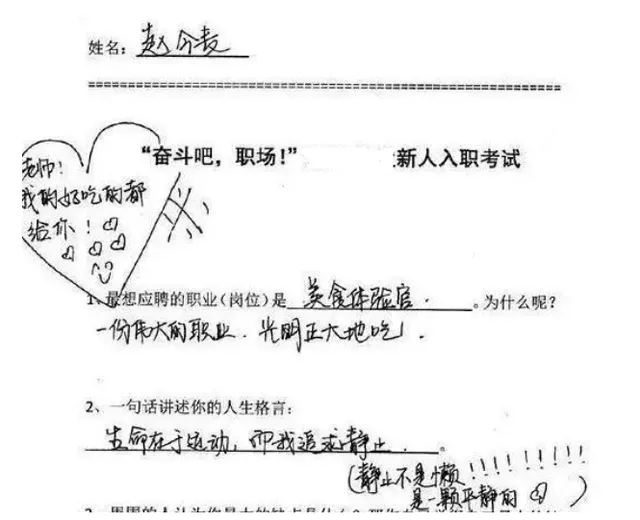 姓名：赵今麦
“奋斗吧，职场！” 新人入职考试
老师！
我的好吃的都
给你！
1、最想应聘的职业（岗位）是 美食体验官. 。为什么呢？
一份伟大的职业. 光明正大地吃！.
2、一句话讲述你的人生格言：
生命在于运动, 而我追求静止. 。
(静止不是懒!!!!!!!!!
是一颗平静的 )